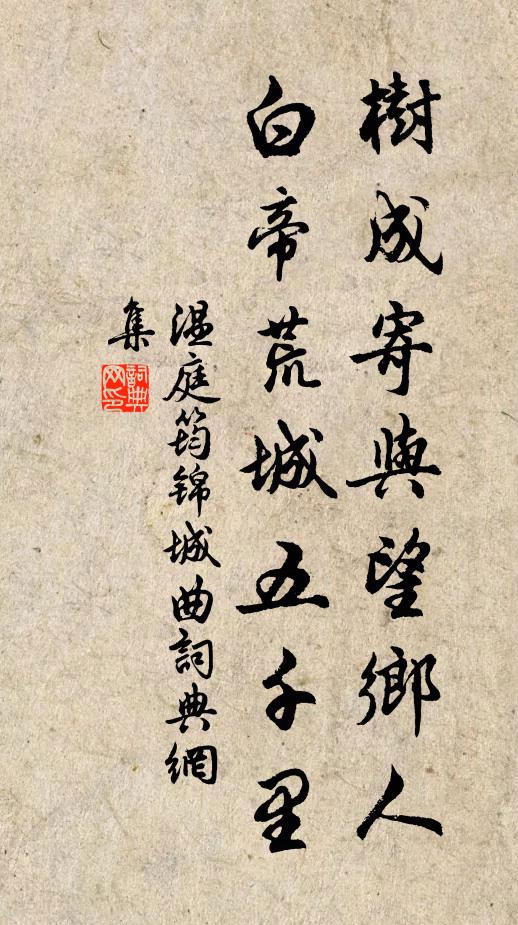 樹成寄與望鄉人
白帝荒城五千里
温庭筠錦城曲詞典網
集
詞典
网印